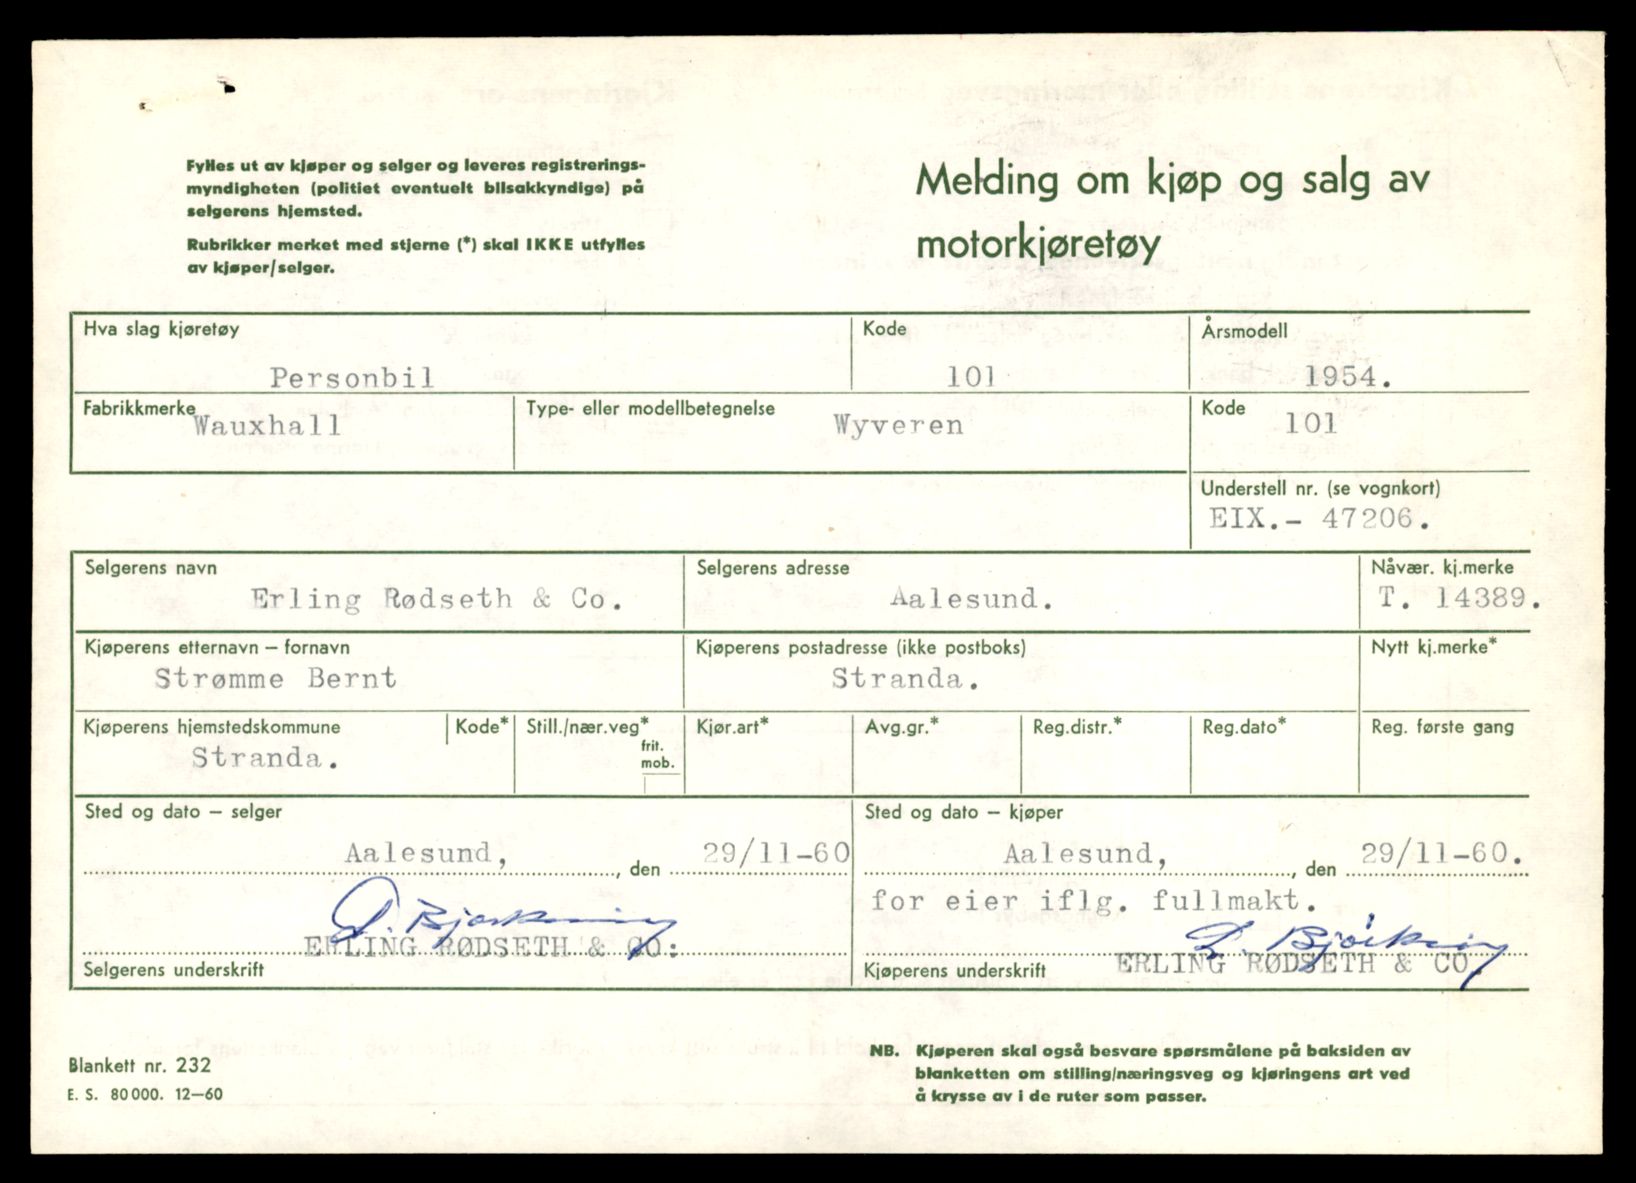 Fylles ut av kjøper og selger og leveres registrerings-
myndigheten (politiet eventuelt bilsakkyndige) på
selgerens hjemsted.
Rubrikker merket med stjerne (*) skal IKKE utfylles
av kjøper/selger.
Melding om kjøp og salg av
motorkjøretøy
Hva slag kjøretøy
Kode
Årsmodell
Personbil
101
1954.
Fabrikkmerke
Type- eller modellbetegnelse
Kode
Wauxhall
Wyveren
101
Understell nr. (se vognkort)
EIX.- 47206.
Selgerens navn
Selgerens adresse
Nåvær. kj.merke
Erling Rødseth & Co.
Aalesund.
T. 14389.
Kjøperens etternavn – fornavn
Kjøperens postadresse (ikke postboks)
Nytt kj.merke*
Strømme Bernt
Stranda.
Kjøperens hjemstedskommune
Kode*
Still./nær.veg*
Kjør.art*
Avg.gr.*
Reg.distr.*
Reg.dato*
Reg. første gang
Stranda.
frit.
mob.
Sted og dato – selger
Sted og dato – kjøper
Aalesund, , den 29/11-60
Aalesund, , den 29/11-60.
for eier iflg. fullmakt.
ERLING RØDSETH & CO:
Selgerens underskrift
Kjøperens underskrift
ERLING RØDSETH & CO.
Blankett nr. 232
E. S. 80 000. 12–60
NB. Kjøperen skal også besvare spørsmålene på baksiden av
blanketten om stilling/næringsveg og kjøringens art ved
å krysse av i de ruter som passer.